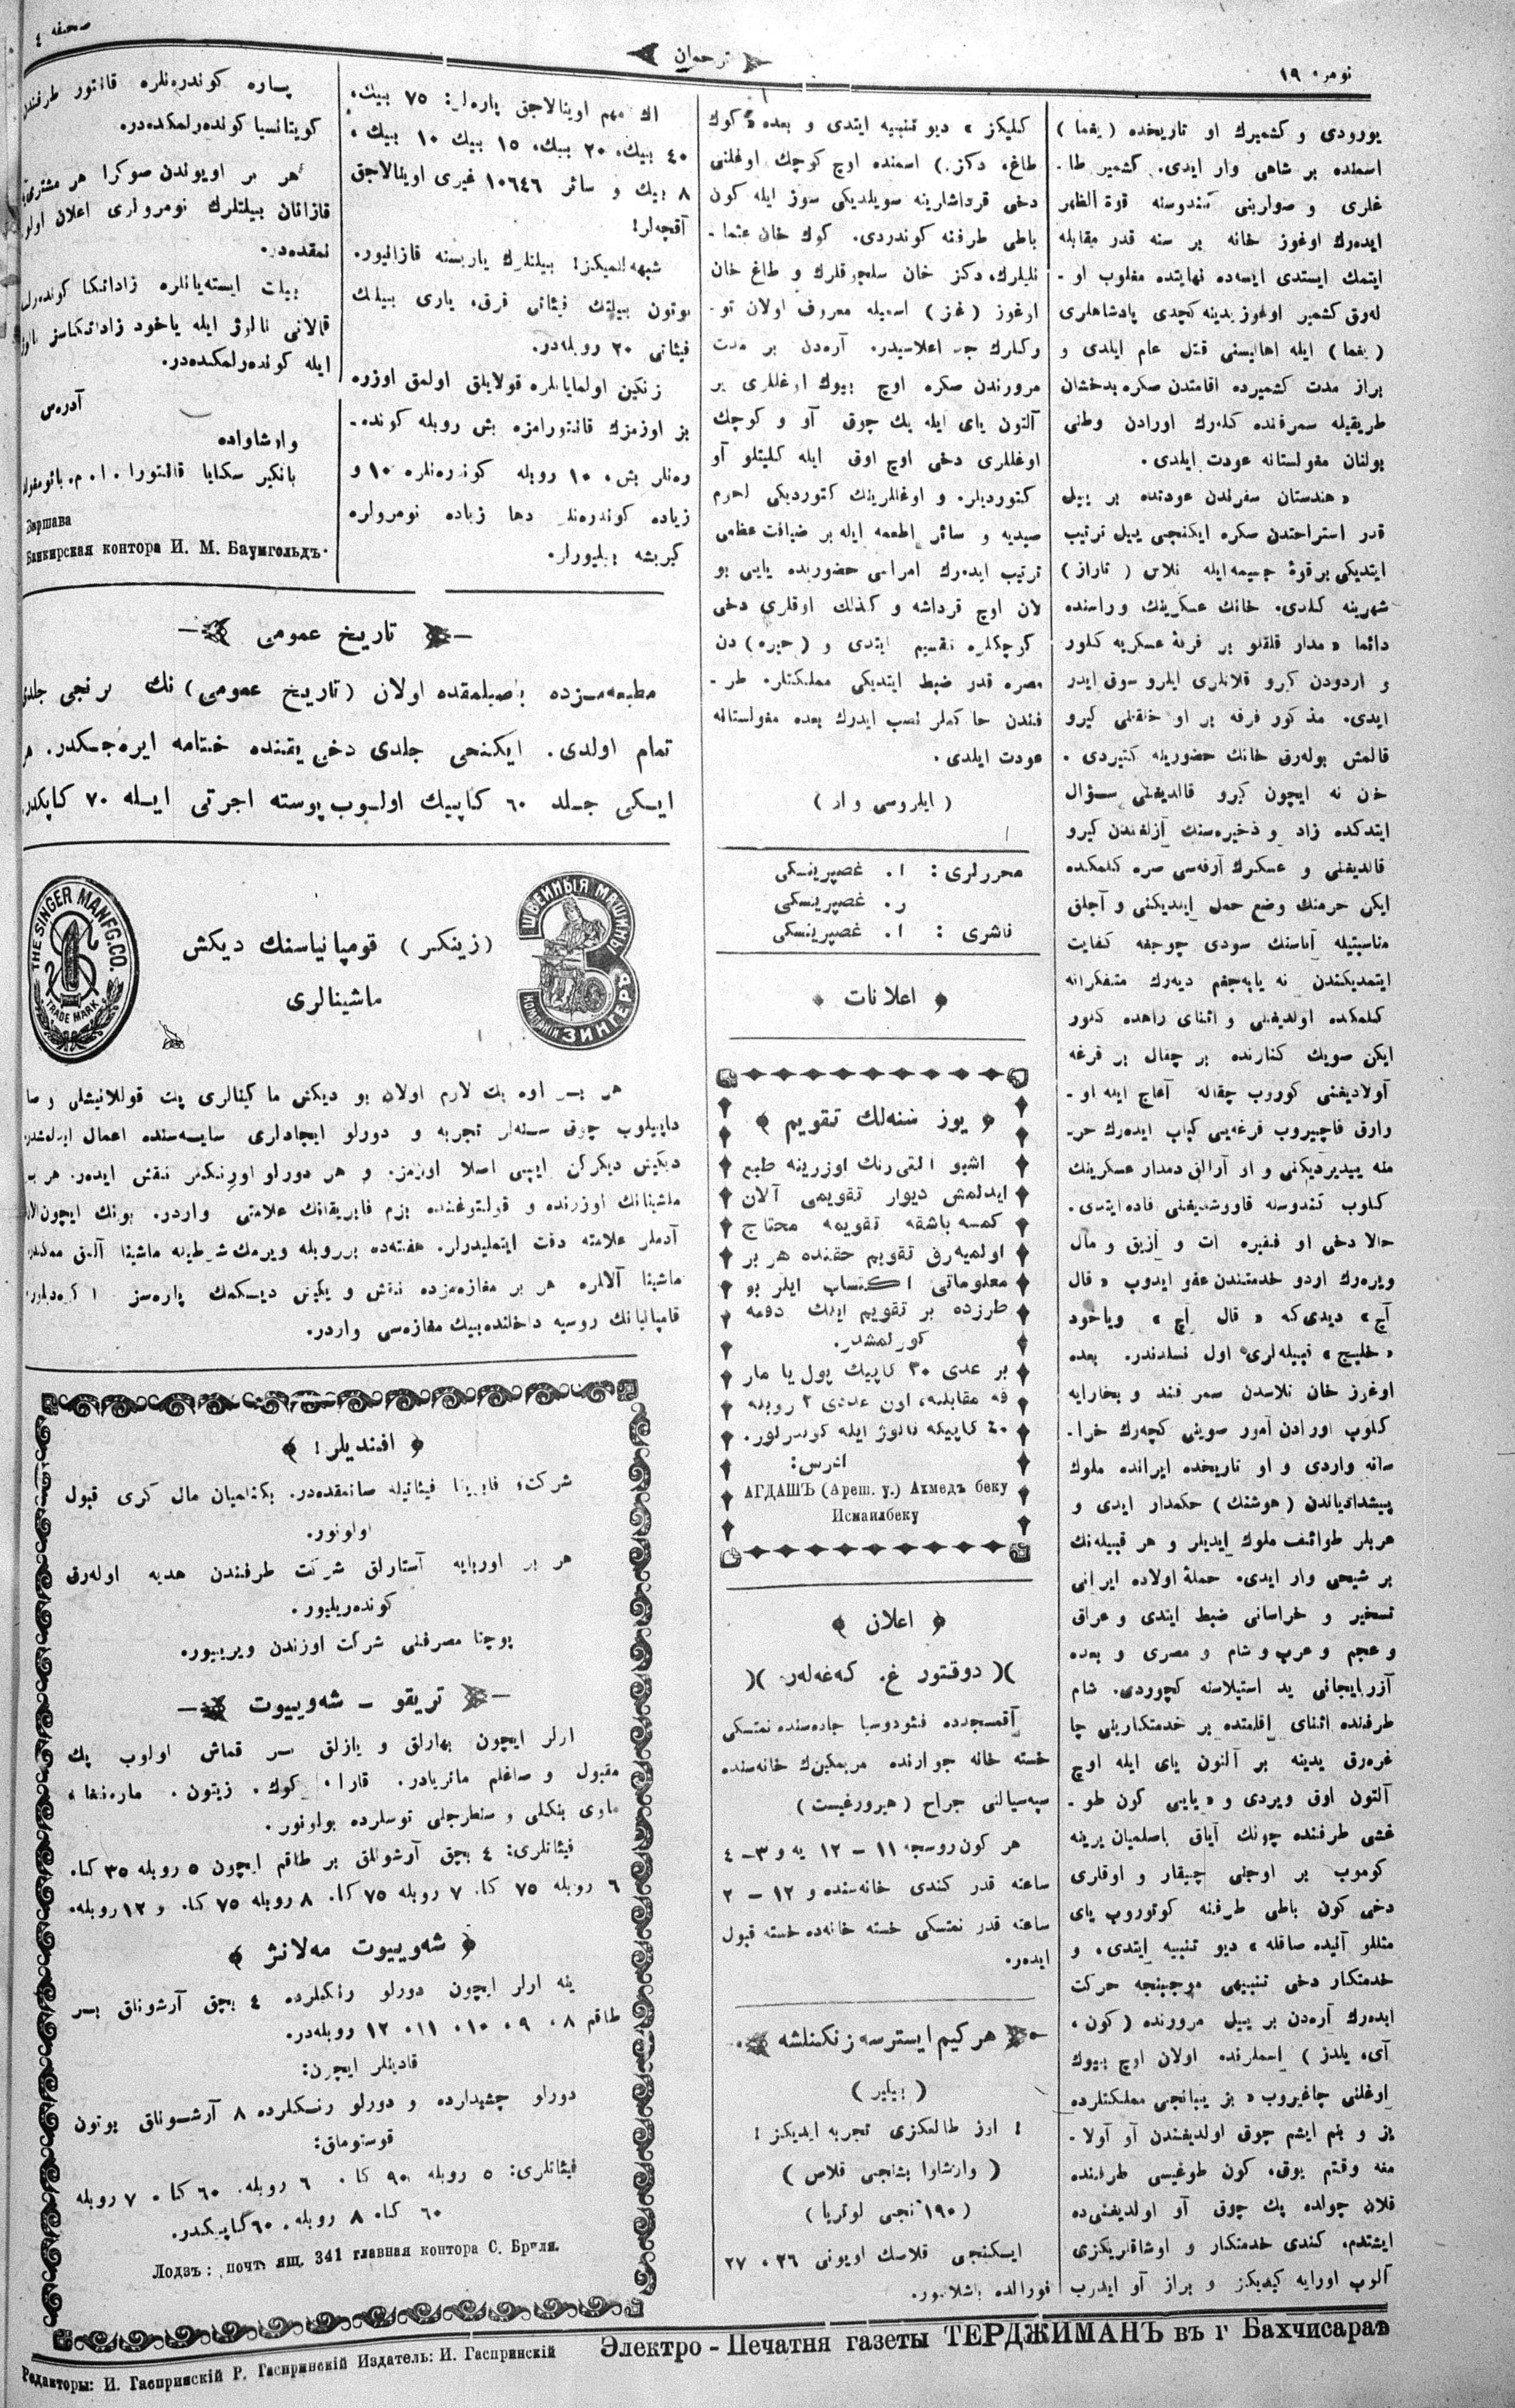 نومرە ١٩
ترجمان
صحيفه ٤
يورودى و كشميرك او تاريخده ( يغما )
اسمنده بر شاهى وار ايدى. كشمير طا-
غلرى و صواريى كندوسنه قوة الظهر
ايده‌رك اوغوز خانه بر سنه قدر مقابله
ايتمك ايستدى ايسه‌ده نهايتده مغلوب او-
له‌رق كشمير اوغوز يدينه كچدى پادشاهلرى
( يغما ) ايله اهاليسنى قتل عام ايلدى و
براز مدت كشميرده اقامتدن صكره بدخشان
طريقيله سمرقنده كله‌رك اورادن وطنى
بولنان مغولستانه عودت ايلدى.
« هندستان سفرندن عودتده بر ييل
قدر استراحتدن صكره ايكنجى ييل ترتيب
ايتديكى بر قوۀ جسيمه ايله تلاس ( تاراز )
شهرينه كلدى. خانك عسكرينك وراسنده
و اردودن كيرو قلانلرى ايلرو سوق ايدر
ايدى. مذكور فرقه بر او خلقنى كيرو
قالمش بوله‌رق خانك حضورينه كتيردى.
خان نه ايچون كيرو قالديغنى سؤال
ايتدكده زاد و ذخيره‌سنك آزلغندن كيرو
قالديغنى و عسكرك آرقه‌سى صره كلمكده
ايكن حرمنك وضع حمل ايتديكنى و آجلق
مناسبتيله آناسنك سودى چوجغه كفايت
ايتمديكندن نه ياپه‌جغم ديه‌رك متفكرانه
كلمكده اولديغنى و اثناى راهده كلور
ايكن صويك كنارنده بر چقال بر قرغه
متە ييديرديكنى و او آرالق دمدار عسكرينك
كلوب كندوسنه قاووشديغنى افاده ايتدى.
حالا دخى او فقيره ات و آزيق و مال
ويره‌رك اردو خدمتندن عفو ايدوب « قال
آچ » ديدى كه « قال اچ » وياخود
« خليج » قبيله‌لرى اول نسلدندر. بعده
اوغوز خان تلاسدن سمرقند و بخارايه
كلوب اورادن آمور صوينى كچه‌رك خرا-
سانه واردى و او تاريخده ايرانده ملوك
پيشداديـاندن ( هوشنك ) حكمدار ايدى و
عربلر طوائف ملوك ايديلر و هر قبيله‌نك
بر شيخى وار ايدى. حملۀ اولاده ايرانى
تسخير و خراسانى ضبط ايتدى و عراق
و عجم و عرب و شام و مصرى و بعده
آزربايجانى يد استيلاسنه كچوردى. شام
طرفنده اثناى اقامتده بر خدمتكارينى چا
غره‌رق يدينه بر آلتون ياى ايله اوچ
آلتون اوق ويردى و « يايى كون طو-
غشى طرفنده چونك آياق باصلميان يرينه
كوموب بر اوجنى چيقار و اوقلرى
دخى كون باطى طرفنه كوتوروب ياى
مثللو آنيده صاقله » ديو تنبيه ايتدى. و
خدمتكار دخى تنبيهى موجبنجه حركت
ايده‌رك آره‌دن بر ييل مرورنده ( كون،
آى، يلدز ) اسملرنده اولان اوچ بيوك
اوغلنى چاغيروب « بز يبانجى مملكتلرده
يز و بنم ايشم چوق اولديغندن آو آولا-
مغه وقتم يوق. كون طوغيسى طرفنده
قلان چولده پك چوق آو اولديغنى‌ده
ايشتدم. كندى خدمتكار و اوشاقلريكزى
آلوب اورايه كيديكز و براز آو ايدرب
كليكز » ديو تنبيه ايتدى و بعده « كوك
طاغ، دكز، ) اسمنده اوچ كوچك اوغلنى
دخى قرداشلرينه سويلديكى سوز ايله كون
باطى طرفنه كوندردى. كوك خان عثما-
نليلرك، دكز خان سلجوقلرك و طاغ خان
اوغوز ( غز ) اسميله معروف اولان تو-
ركلرك جد اعلاسيدر. آره‌دن بر مدت
مرورندن صكره اوچ بيوك اوغللرى بر
آلتون ياى ايله پك چوق آو و كوچك
اوغللرى دخى اوچ اوق ايله كليتلو آو
كتورديلر. و اوغللرينك كتورديكى لحوم
صيديه و سائر اطعمه ايله بر ضيافت عظمى
ترتيب ايده‌رك امراسى حضورنده يايى بو
لان اوچ قرداشه و كذلك اوقلرى دخى
كوچكلره تقسيم ايتدى و ( جيره ) دن
مصره قدر ضبط ايتديكى مملكتلره طر-
فندن حاكملر نصب ايدرك بعده مغولستانه
عودت ايلدى.
( ايلروسى وار )
محررلرى: ا. غصپرينسكى
ر. غصپرينسكى
ناشرى: ا. غصپرينسكى
اعلانات
يوز سنه‌لك تقويم
اشبو التى رنك اوزرينه طبع
ايدلمش ديوار تقويمى آلان
كمسه باشقه تقويمه محتاج
اولميه‌رق تقويم حقنده هر بر
معلوماتى اكتساب ايلر بو
طرزده بر تقويم ايلك دفعه
كورلمشدر.
بر عددى ٣٠ كاپيك پول يا مار
قه مقابلنه، اون عددى ٢ روبله
٤٠ كاپيكه نالوژ ايله كوندرلور.
ادرس:
АГДАШЪ (Ареш. у.) Ахмедъ беку
Исмаилбеку
اعلان
)( دوقتور غ. كه‌غه‌له‌ر )(
آقمسجدده فئودوسيا جاده‌سنده نمتسكى
سپه‌سيالنى جراح ( هيرورغيست )
هر كون روسجه ١١ – ١٢ يه و ٣–٤
ساعته قدر كندى خانه‌سنده و ١٢ – ٢
ساعته قدر نمتسكى خسته خانه‌ده خسته قبول
ايده‌ر.
هر كيم ايسترسه زنكنلشه
( بيلير )
! اوز طالعكزى تجربه ايديكز !
( وارشاوا بشنجى قلاص )
( ١٩٠ نجى لوتريا )
ايسكنجى قلاسك اويونى ٢٦، ٢٧
فورالده باشلانيور.
اك مهم اوينالاجق پاره‌لر: ٧٥ بيك،
٤٠ بيك، ٢٠ بيك، ١٥ بيك ١٠ بيك،
٨ بيك و سائر ١٠٦٤٦ غيرى اوينالاجق
آقچه‌لر!
شبهه ايتميكز! بيلتلرك ياريسنه قازانيور.
بوتون بيلتك فيئاتى فرق، يارى بيلتك
فيئاتى ٢٠ روبله‌در.
زنكين اولمايانلره قولايلق اولمق اوزره
بز اوزمزك قانتورامزه بش روبله كونده-
ره‌نلر بش، ١٠ روبله كونده‌ره‌نلره ١٠ و
زياده كونده‌ره‌نلر دها زياده نومرولره
كيريشه بيليورلر.
پساره كونده‌ره‌نلره قانتور طرفندن
كويتانسيا كونده‌رلمكده‌در.
هر بر اويوندن صوكرا هر مشترى‌يه
قازانان بيلتلرك نومرولرى اعلان اولو
نمقده‌در.
بيلت ايسته‌يانلره زاداتكا كونده‌رلر
قالانى نالوژ ايله ياخود زاداتكاسز نالوژ
ايله كونده‌رلمكده‌در.
آدره‌س
وارشاواده
بانكير سكايا قانتورا. ا. م. باومغولد
Варшава
Банкирская контора И. М. Баумгольдъ.
تاريخ عمومى
مطبعه‌مزده باصيلمقده اولان ( تاريخ عمومى ) نك برنجى جلدى
تمام اولدى. ايكنجى جلدى دخى يقينده ختامه ايره‌جكدر. هر
ايكى جلد ٦٠ كاپيك اولوب پوسته اجرتى ايله ٧٠ كاپكدر
THE SINGER MANFG. CO.
TRADE MARK
( زينكر ) قومپانياسنك ديكش
ماشينالرى
ШВЕЙНЫЯ МАШИНЫ
КОМПАНІИ ЗИНГЕРЪ
ماشينا آلانلره هر بر مغازه‌مزده نقش و ديكيش ديكمك پاره‌سز
قامپانيانك روسيه داخلنده بيك مغازه‌سى واردر.
افنديلر!
شركت فابريقا فيئاتيله صاتمقده‌در. بكنلميان مال كرى قبول
اولونور.
هر بر اوربايه آستارلق شركت طرفندن هديه اوله‌رق
كونده‌ريليور.
پوچتا مصرفنى شركت اوزندن ويرييور.
تريقو – شه‌وييوت
ارلر ايچون بهارلق و يازلق بسر قماش اولوب پك
مقبول و صاغلم ماتريادر. قارا، كوك، زيتون،
فيئاتلرى: ٤ بچق آرشونلق بر طاقم ايچون ٥ روبله ٣٥ كا.
٦ روبله ٧٥ كا. ٧ روبله ٧٥ كا. ٨ روبله ٧٥ كا. و ١٢ روبله.
شه‌وييوت مه‌لانژ
ينه ارلر ايچون دورلو رنكلرده ٤ بچق آرشونلق بسر
طاقم ٨، ٩، ١٠، ١١، ١٢ روبله‌در.
قادينلر ايچون:
دورلو چشيدلرده و دورلو رنكلرده ٨ آرشونلق بوتون
قوستوملق:
فيئاتلرى: ٥ روبله ٩٠ كا. ٦ روبله. ٦٠ كا. ٧ روبله
٦٠ كا. ٨ روبله. ٦٠ كاپيكدر.
Лодзъ: почт. ящ. 341 главная контора С. Бриля.
Электро - Печатня газеты ТЕРДЖИМАНЪ въ г Бахчисараѣ
Редакторы: И. Гаспринскій Р. Гаспринскій Издатель: И. Гаспринскій